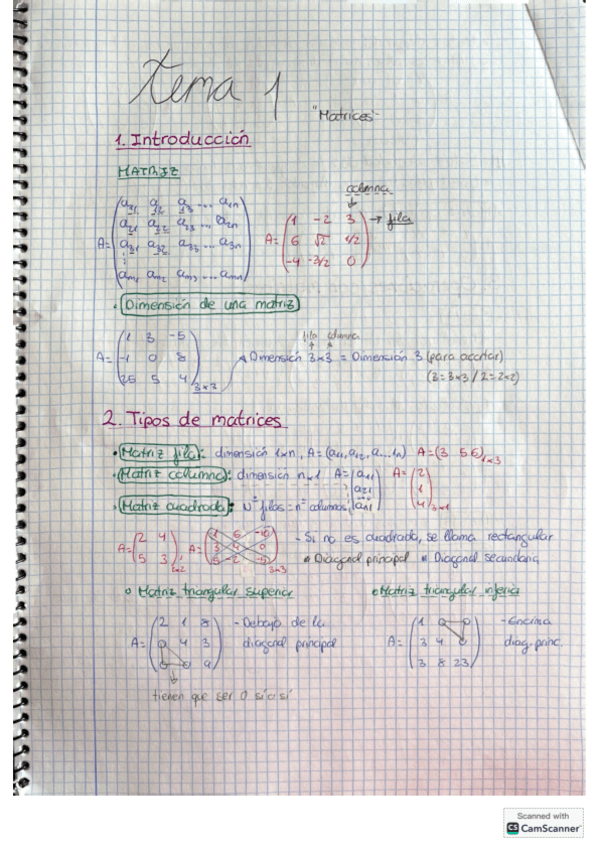 tema 1
"Matrices"
1. Introducción
MATRIZ
columna
A= (a11 a12 a13 ... a1n
a21 a22 a23 ... a2n
a31 a32 a33 ... a3n
am1 am2 am3 ... amn)
A= (1 -2 3 → fila
6 √2 1/2
-4 -3/2 0)
· Dimensión de una matriz
fila columna
A= (1 3 -5
-1 0 8
25 5 4) 3x3
Dimensión 3x3 = Dimensión 3 (para acortar)
(3=3x3 / 2=2x2)
2. Tipos de matrices
· Matriz fila: dimensión 1xn, A=(a11, a12, a...1n) A=(3 5 6)1x3
· Matriz columna: dimensión nx1 A=(a11 a21 an1) A=(2 1 4)3x1
· Matriz cuadrada: nº filas = nº columnas
A=(2 4
5 3)2x2, A=(1 6 -10
3 4 0
5 -2 -5)3x3
- Si no es cuadrada, se llama rectangular
Diagonal principal Diagonal secundaria
Matriz triangular superior
A= (2 1 8
0 4 3
0 0 9)
- Debajo de la
diagonal principal
tienen que ser 0 sí o sí
Matriz triangular inferior
A= (1 0 0
3 4 0
3 8 23)
- Encima
diag. princ.
Scanned with
CS CamScanner